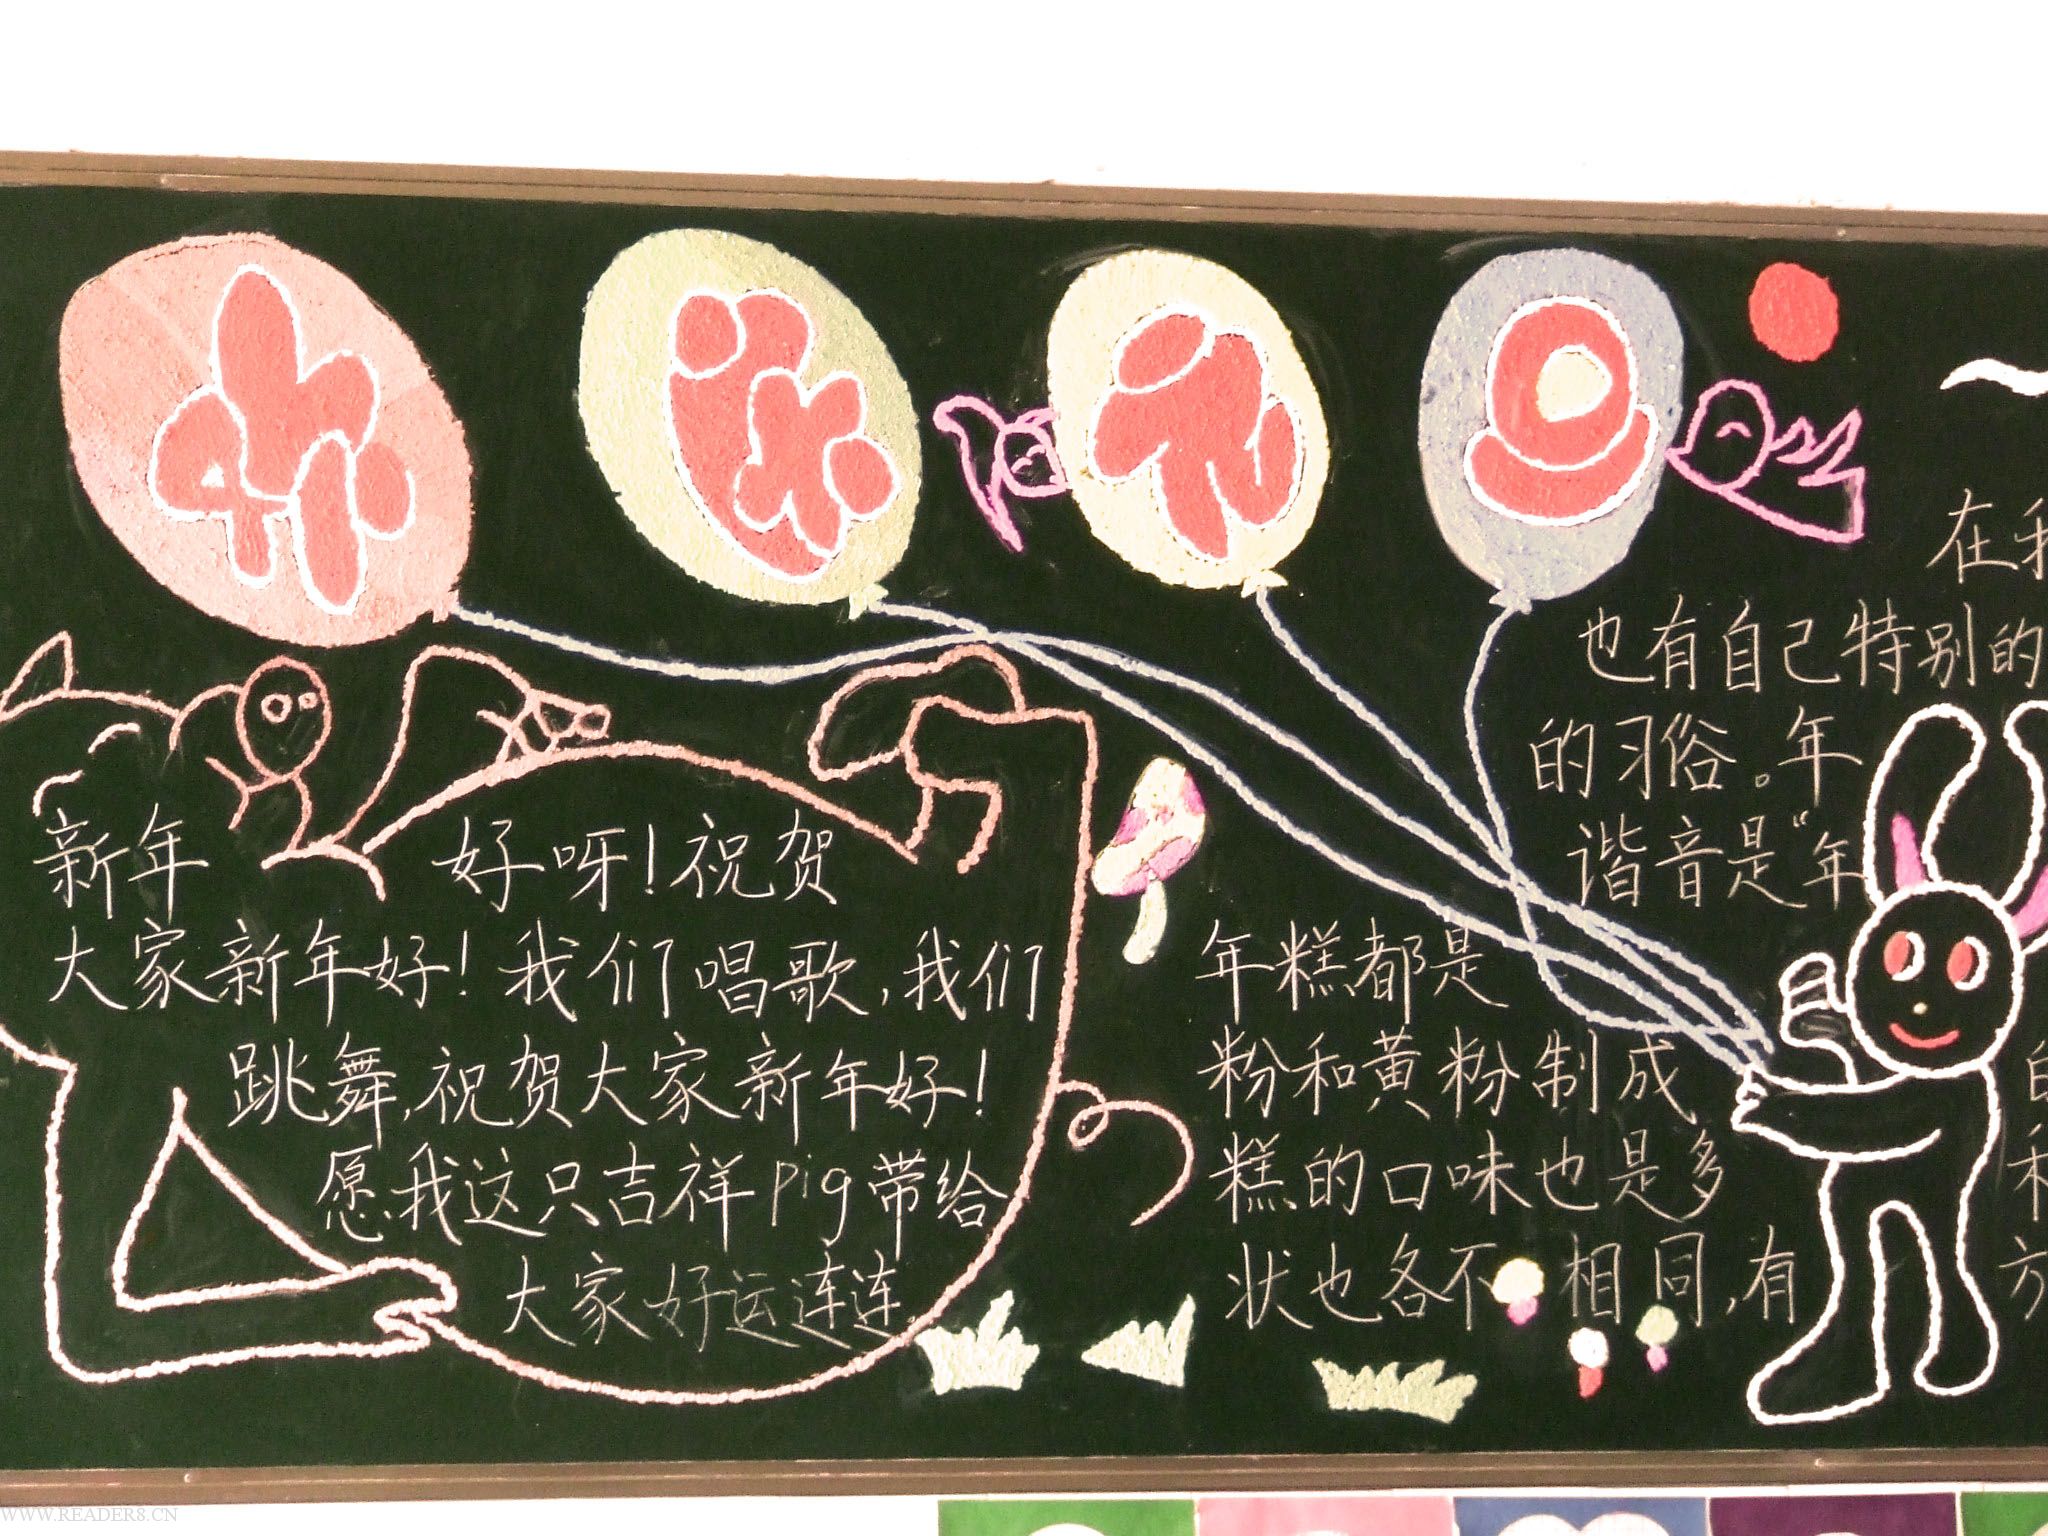 新春元旦
新年 好呀！祝贺
大家新年好！我们唱歌，我们
跳舞，祝贺大家新年好！
愿我这只吉祥pig带给
大家好运连连
在我
也有自己特别的
的习俗。年
谐音是“年
年糕都是
粉和黄粉制成
糕的口味也是多
状也各不相同，有
的
和
方
WWW.READER8.CN